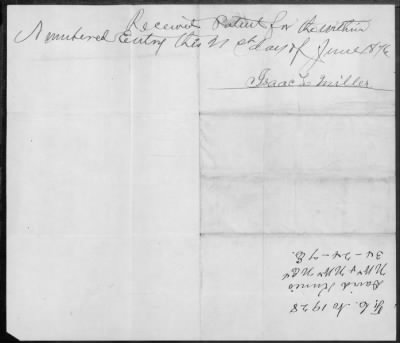 Received Patent for the within
Numbered Entry this 21st day of June 1876
Isaac L Miller
F.C. No 1928
David
N W ¼ N W & N E ¼
34 - 24 - 7 E.